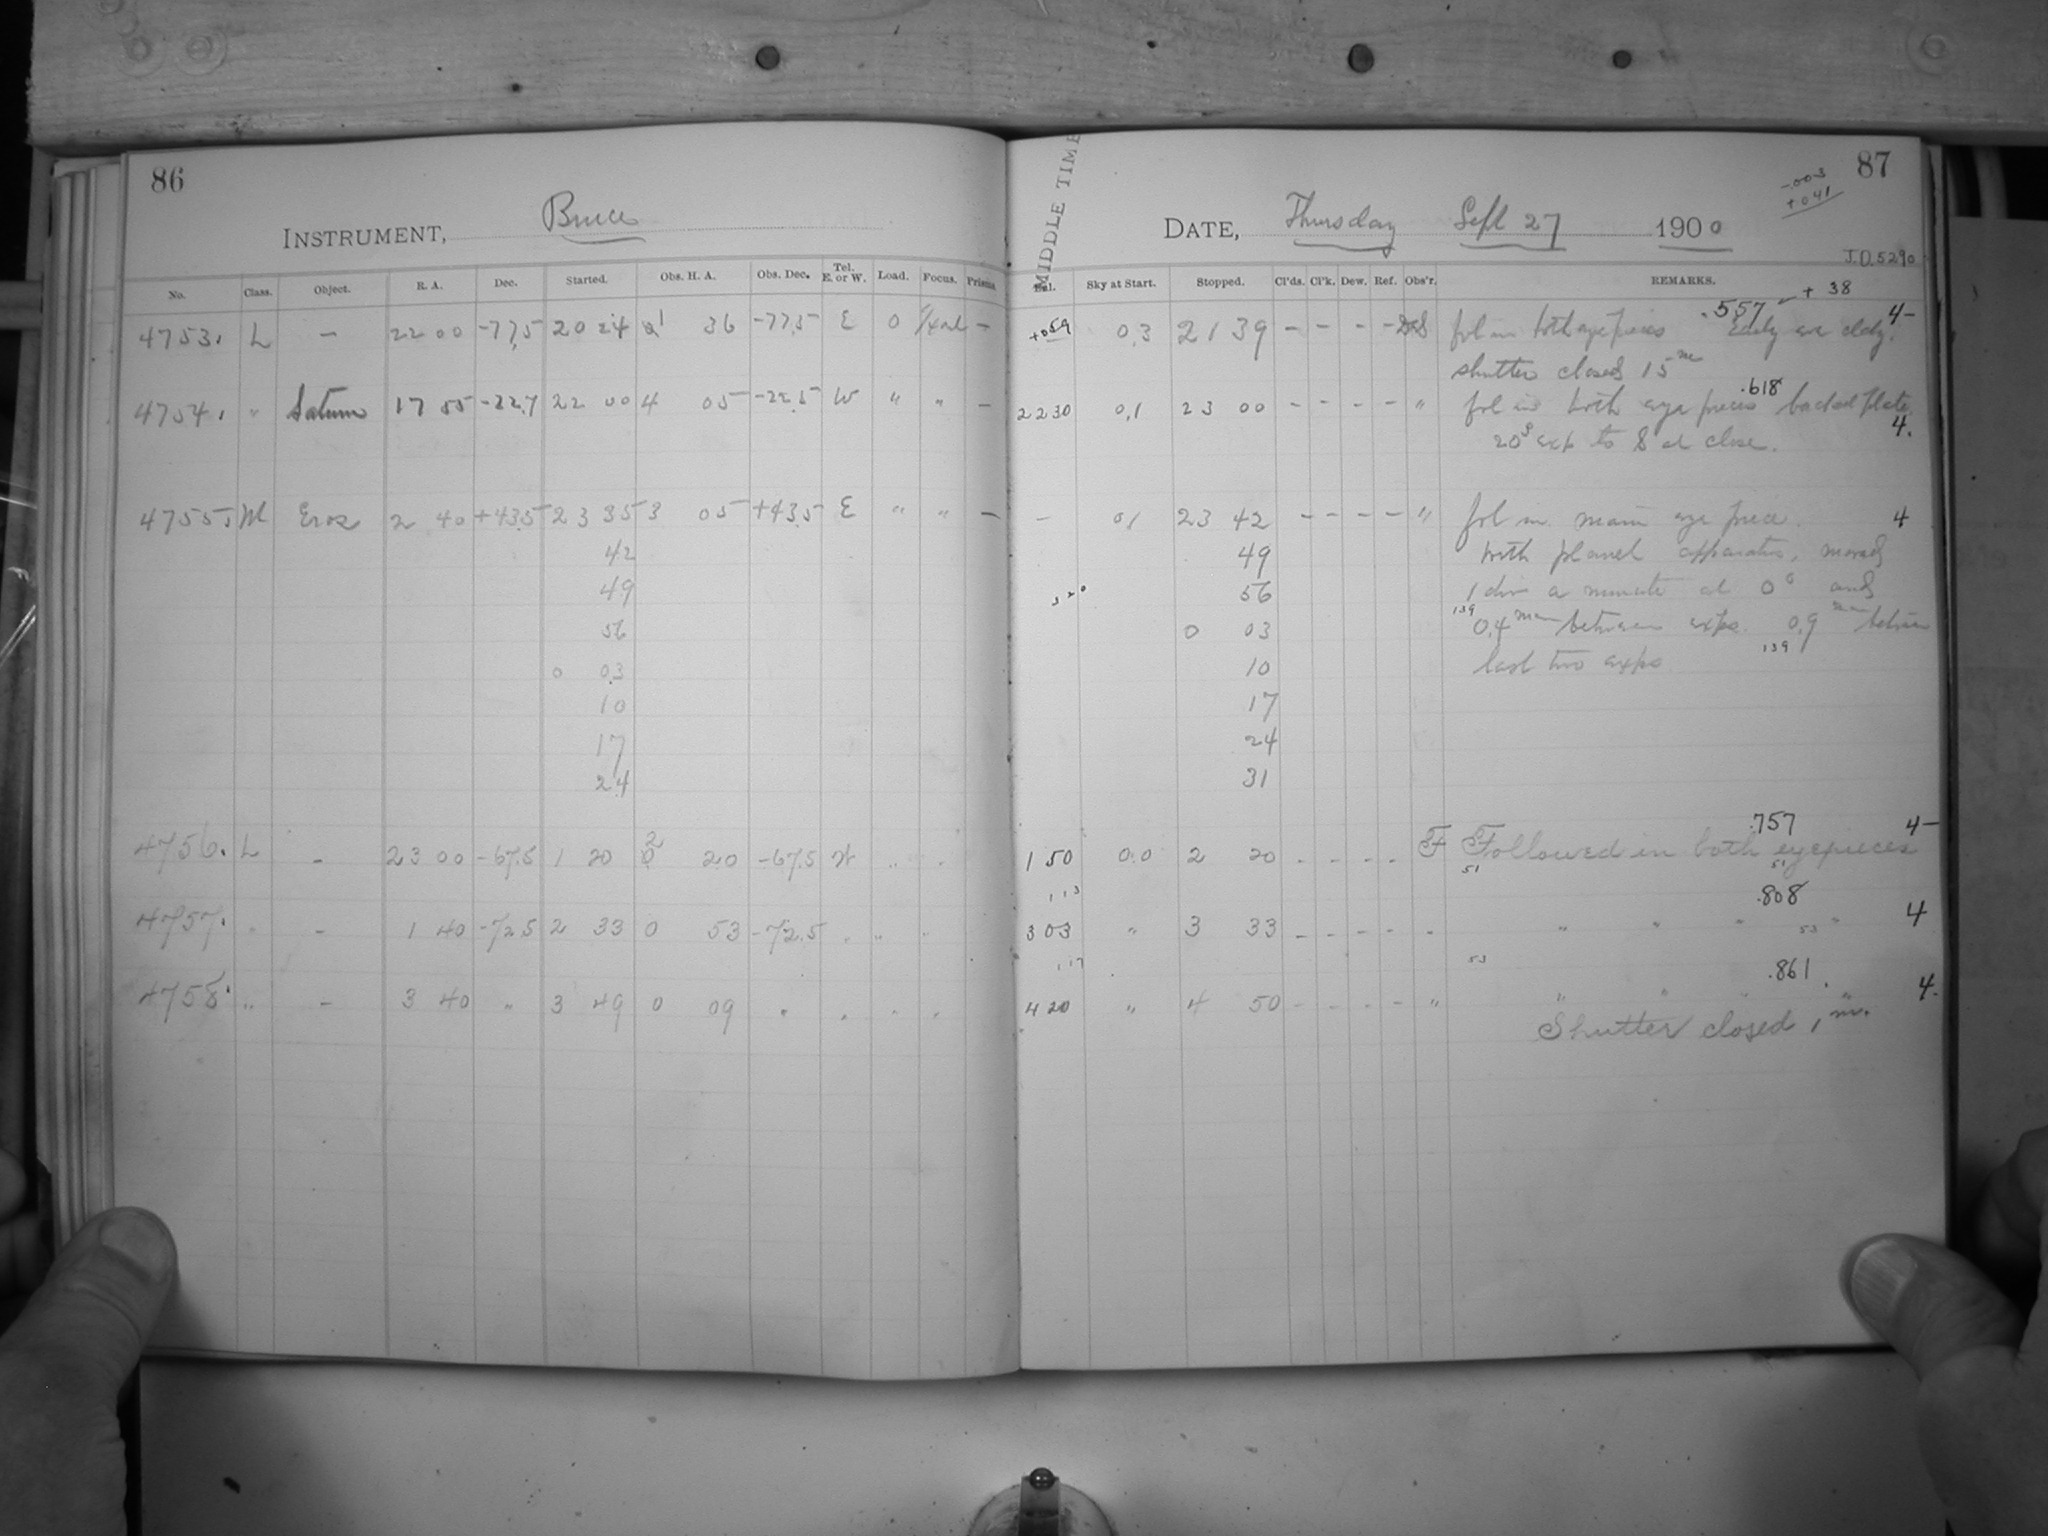 86
INSTRUMENT, Bruce
No. Class. Object. R. A. Dec. Started. Obs. H. A. Obs. Dec. Tel. E. or W. Load. Focus. Prisms
4753. L – 22 00 -77.5 20 24 1 36 -77.5 E 0 –
4754. " Saturn 17 55 -22.7 22 00 4 05 -22.5 W " " –
4755. M Eros 2 40 +43.5 23 35 3 05 +43.5 E " " –
42
49
56
0 03
10
17
24
4756. L – 23 00 -67.5 1 20 2 20 -67.5 W " "
4757. " – 1 40 -72.5 2 33 0 53 -72.5 " " "
4758. " – 3 40 " 3 49 0 09 " " " "
87
-.003
+041
MIDDLE TIME
DATE, Thursday Sept 27 1900
J.D. 5290
Sky at Start. Stopped. Cl'ds. Cl'k. Dew. Ref. Obs'r. REMARKS.
+ 38
.557
+059 0.3 21 39 – – – – fol in both eyepieces Early eve cldy. 4-
shutter closed 15 m
.618
22 30 0.1 23 00 – – – – " fol in both eye pieces backed plate
20 s exp to S at close. 4.
– 0.1 23 42 – – – – " fol in main eye piece. 4
49 with planet apparatus, moved
320 56 1 div a minute at 0° and
139
0 03 0.4 mm between exps. 0.9 mm between
139
10 last two exps
17
24
31
.757
1 50 0.0 2 20 – – – – F Followed in both eyepieces 4-
51 51
1 13 .808
3 03 " 3 33 – – – – " " " " " 4
53
1 17 53 .861
4 20 " 4 50 – – – – " " " " " 4.
Shutter closed 1 m.